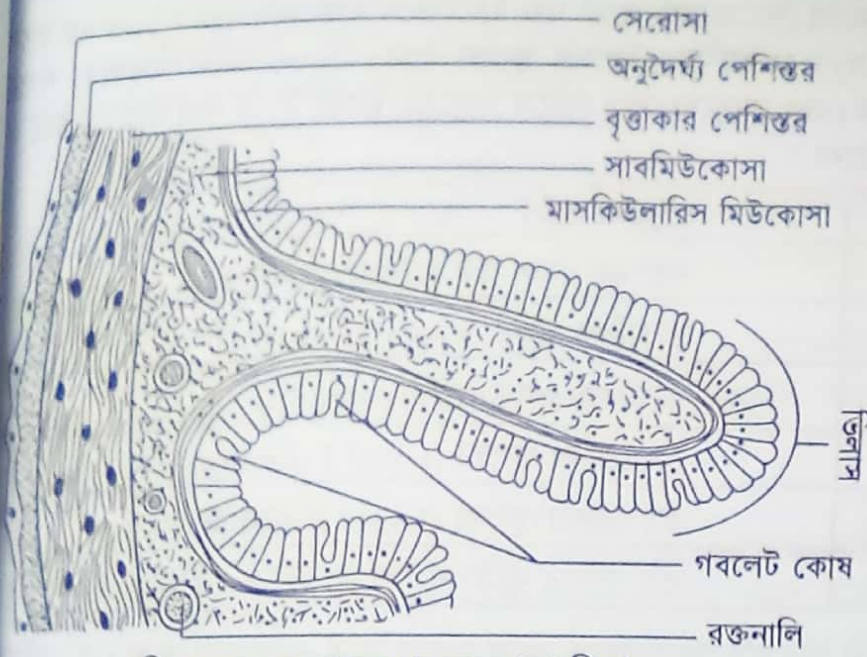 সেরোসা
অনুদৈর্ঘ্য পেশিস্তর
বৃত্তাকার পেশিস্তর
সাবমিউকোসা
মাসকিউলারিস মিউকোসা
ভিলাস
গবলেট কোষ
রক্তনালি